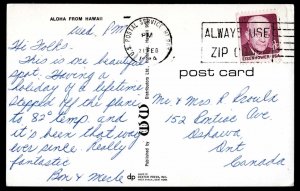 ALOHA FROM HAWAII
Wed. PM
Hi Folks.
This is one beautiful
spot. Having a
holiday of a lifetime
Stepped off the plane
to 82° temp. and
it's been that way
ever since. Really
fantastic
Ben & Merle
U.S. POSTAL SERVICE
PM
21 FEB
ALWAYS USE
ZIP
EISENHOWER·USA
post card
Mr & Mrs R
152
Oshawa
Ont
Canada
dp